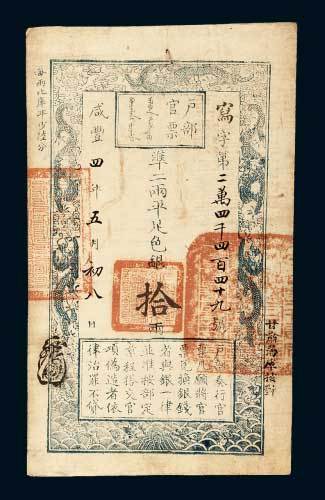 戶部
官票
寫字第二萬四千四百四十九號
準二兩平足色銀拾兩
咸豐四年五月初八日
每兩比庫平少陸分
戶部奏行官
票凡願將官
票兌換銀錢
者與銀一律
並准按部定
章程搭交官
項偽造者依
律治罪不貸
甘肅